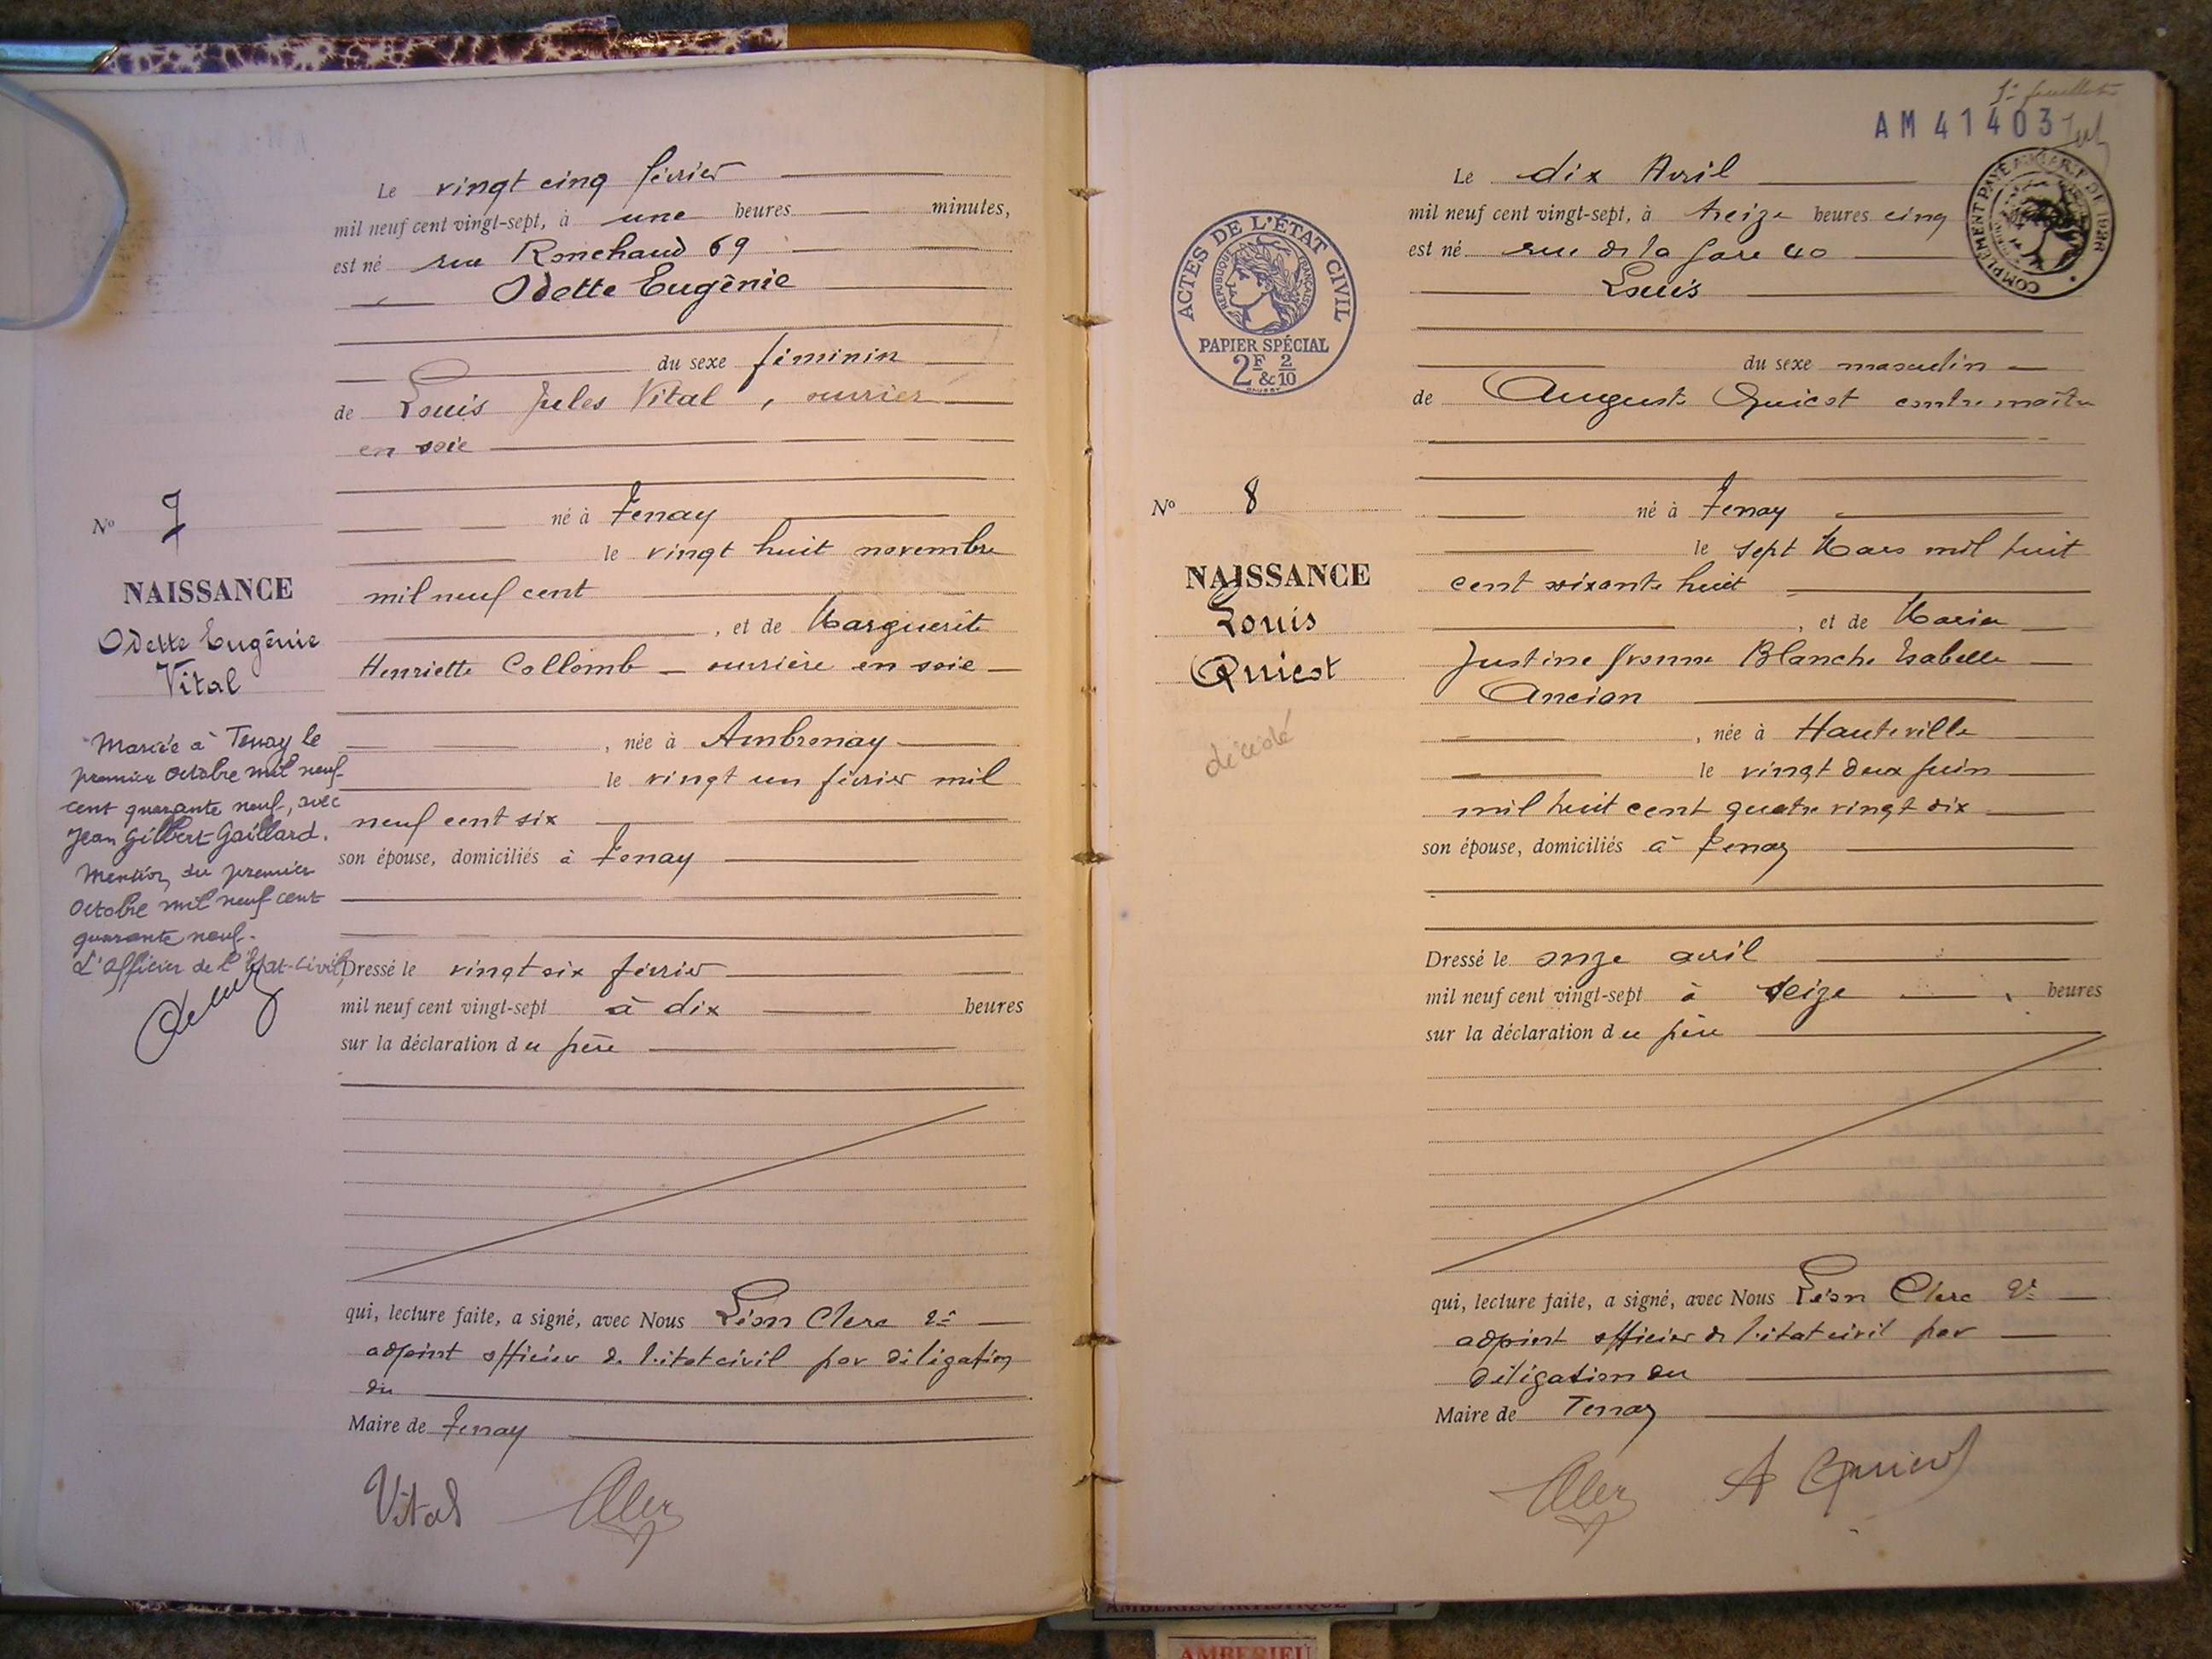 Le vingt cinq février
mil neuf cent vingt-sept, à une heures minutes,
est né rue Ronchaud 69
Odette Eugénie
du sexe féminin
de Louis Jules Vital, ouvrier
en soie
né à Tenay
le vingt huit novembre
mil neuf cent
, et de Marguerite
Henriette Collomb - ouvrière en soie
, née à Ambronay
le vingt un février mil
neuf cent six
son épouse, domiciliés à Tenay
Dressé le vingt six février
mil neuf cent vingt-sept à dix heures
sur la déclaration du père
qui, lecture faite, a signé, avec Nous Léon Clerc 2e
adjoint officier de l'état civil par délégation
du
Maire de Tenay
Vital
No 7
NAISSANCE
Odette Eugénie
Vital
Mariée à Tenay le
premier Octobre mil neuf
cent quarante neuf, avec
Jean Gilbert Gaillard.
Mention du premier
Octobre mil neuf cent
quarante neuf.
L'Officier de l'Etat-civil,
feuillet
AM 41403
Le dix Avril
mil neuf cent vingt-sept, à treize heures cinq
est né rue de la Gare 40
Louis
du sexe masculin
de Auguste Quicot contremaître
né à Tenay
le sept Mars mil huit
cent soixante huit
, et de Maria
Justine Yvonne Blanche Isabelle
Ancian
, née à Hauteville
le vingt deux Juin
mil huit cent quatre vingt dix
son épouse, domiciliés à Tenay
Dressé le onze avril
mil neuf cent vingt-sept à seize heures
sur la déclaration du père
qui, lecture faite, a signé, avec Nous Léon Clerc 2e
adjoint officier de l'état civil par
délégation du
Maire de Tenay
A Quicot
ACTES DE L'ÉTAT CIVIL
RÉPUBLIQUE FRANÇAISE
PAPIER SPÉCIAL
2F & 2/10
No 8
NAISSANCE
Louis
Quicot
décédé
COMPLÉMENT PAYÉ
AMBERIEU ARTISTIQUE
AMBERIEU